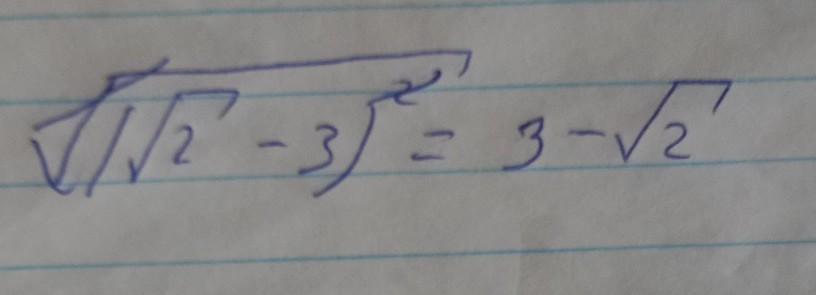 √(√2 - 3)² = 3 - √2